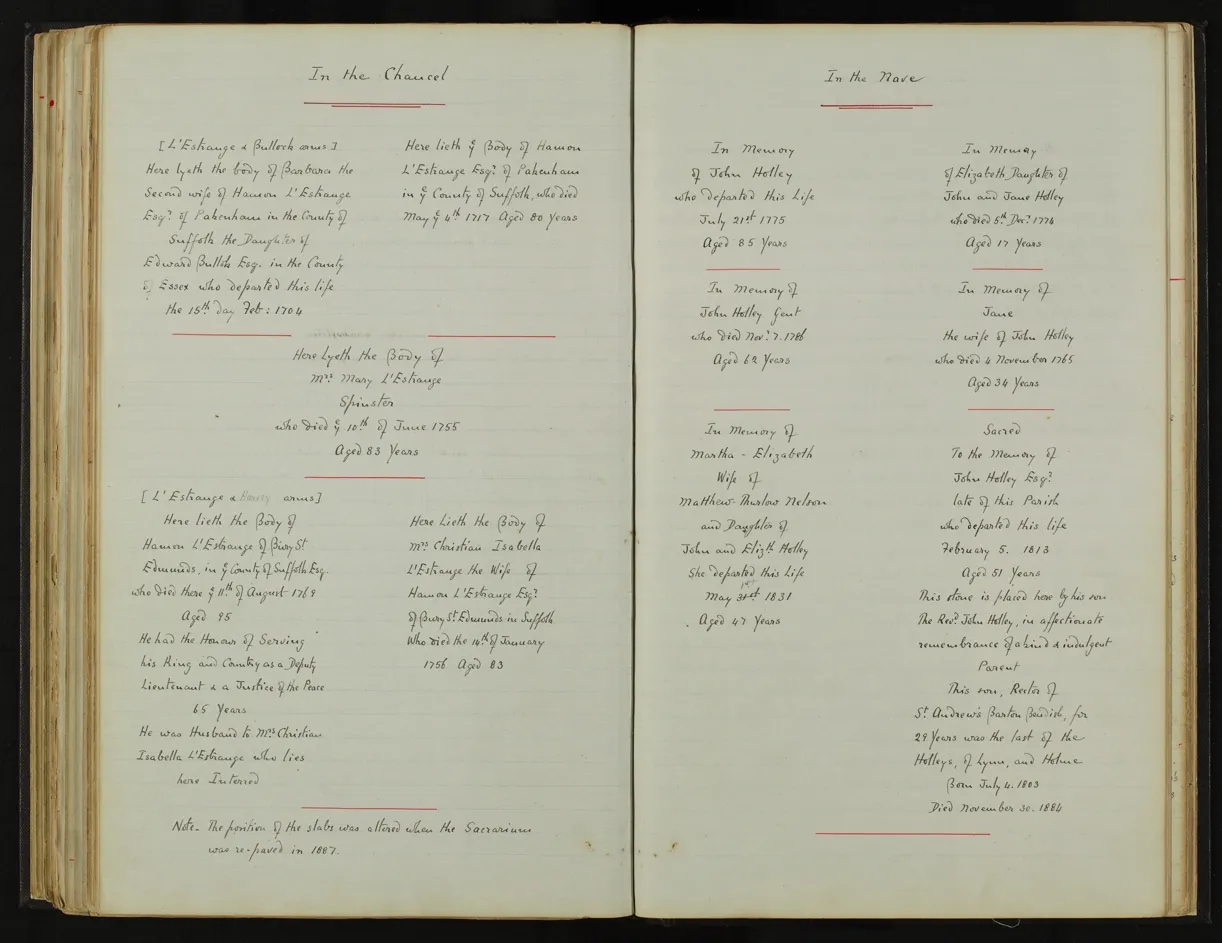 In the Chancel
[L'Estrange & Bullock arms]
Here lyeth the body of Barbara the
Second wife of Hamon L'Estrange
Esqr. of Pakenham in the County of
Suffolk the Daughter of
Edward Bullok Esq. in the County
of Essex who departed this life
the 15th day Feb: 1704
Here lieth ye Body of Hamon
L'Estrange Esqr. of Pakenham
in ye County of Suffolk, who died
May ye 4th 1717 Aged 80 years
Here Lyeth the Body of
Mrs. Mary L'Estrange
Spinster
who died ye 10th of June 1755
Aged 83 Years
[L'Estrange & arms]
Here lieth the Body of
Hamon L'Estrange of Bury St
Edmunds, in ye County of Suffolk Esq.
who died there ye 11th of August 1769
Aged 95
He had the Honour of Serving
his King and Country as a Deputy
Lieutenant & a Justice of the Peace
65 Years
He was Husband to Mrs. Christian
Isabella L'Estrange who lies
here Interred
Here Lieth the Body of
Mrs. Christian Isabella
L'Estrange the Wife of
Hamon L'Estrange Esqr.
of Bury St. Edmunds in Suffolk
Who died the 14th of January
1756 Aged 83
Note - The position of the slabs was altered when the Sacrarium
was re-paved in 1887.
In the Nave
In Memory
of John Holley
who departed this Life
July 21st 1775
Aged 85 Years
In Memory
of Elizabeth Daughter of
John and Jane Holley
who died 5th Decr. 1774
Aged 17 Years
In Memory of
John Holley Gent
who died Novr. 7. 1786
Aged 62 Years
In Memory of
Jane
the wife of John Holley
who died 4 November 1765
Aged 34 Years
In Memory of
Martha - Elizabeth
Wife of
Matthew-Thurlow Nelson
and Daughter of
John and Elizth Holley
She departed this Life
May 31st 1831
Aged 47 Years
Sacred
To the Memory of
John Holley Esqr.
late of this Parish
who departed this life
February 5. 1813
Aged 51 Years
This stone is placed here by his son
The Revd. John Holley, in affectionate
remembrance of a kind & indulgent
Parent
This son, Rector of
St. Andrew's Barton Bendish, for
29 Years was the last of the
Holleys, of Lynn, and Holme
Born July 4. 1803
Died November 30. 1884